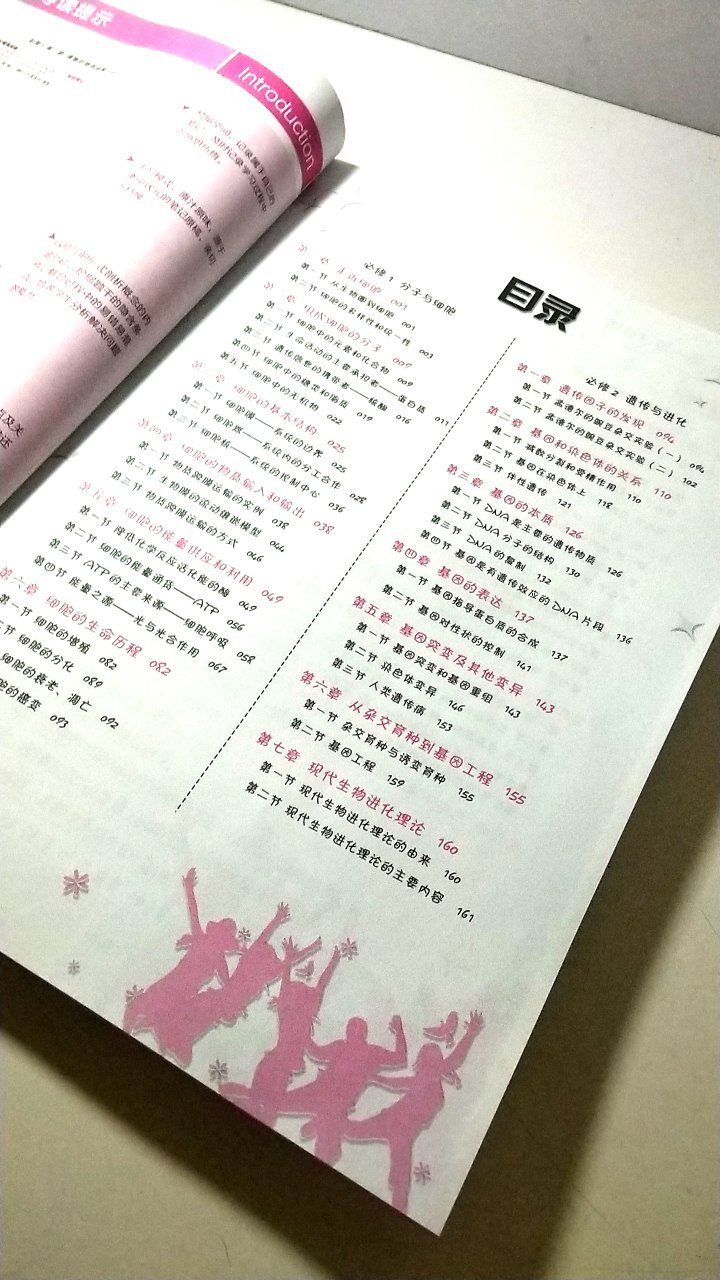 导读提示
Introduction
目录
必修1 分子与细胞
走近细胞 001
第一节 从生物圈到细胞 001
第二节 细胞的多样性和统一性 003
组成细胞的分子 009
第一节 细胞中的元素和化合物 009
第二节 生命活动的主要承担者——蛋白质 011
第三节 遗传信息的携带者——核酸 016
第四节 细胞中的糖类和脂质 019
第五节 细胞中的无机物 022
细胞的基本结构 025
第一节 细胞膜——系统的边界 025
第二节 细胞器——系统内的分工合作 028
第三节 细胞核——系统的控制中心 036
第四章 细胞的物质输入和输出 038
第一节 物质跨膜运输的实例 038
第二节 生物膜的流动镶嵌模型 044
第三节 物质跨膜运输的方式 046
第五章 细胞的能量供应和利用 049
第一节 降低化学反应活化能的酶 049
第二节 细胞的能量通货——ATP 056
第三节 ATP的主要来源——细胞呼吸 058
第四节 能量之源——光与光合作用 067
第六章 细胞的生命历程 082
第一节 细胞的增殖 082
节 细胞的分化 089
细胞的衰老、凋亡 092
胞的癌变 093
必修2 遗传与进化
第一章 遗传因子的发现 094
第一节 孟德尔的豌豆杂交实验（一） 094
第二节 孟德尔的豌豆杂交实验（二） 102
第二章 基因和染色体的关系 110
第一节 减数分裂和受精作用 110
第二节 基因在染色体上 118
第三节 伴性遗传 121
第三章 基因的本质 126
第一节 DNA是主要的遗传物质 126
第二节 DNA分子的结构 130
第三节 DNA的复制 132
第四节 基因是有遗传效应的DNA片段 136
第四章 基因的表达 137
第一节 基因指导蛋白质的合成 137
第二节 基因对性状的控制 141
第五章 基因突变及其他变异 143
第一节 基因突变和基因重组 143
第二节 染色体变异 146
第三节 人类遗传病 153
第六章 从杂交育种到基因工程 155
第一节 杂交育种与诱变育种 155
第二节 基因工程 159
第七章 现代生物进化理论 160
第一节 现代生物进化理论的由来 160
第二节 现代生物进化理论的主要内容 161